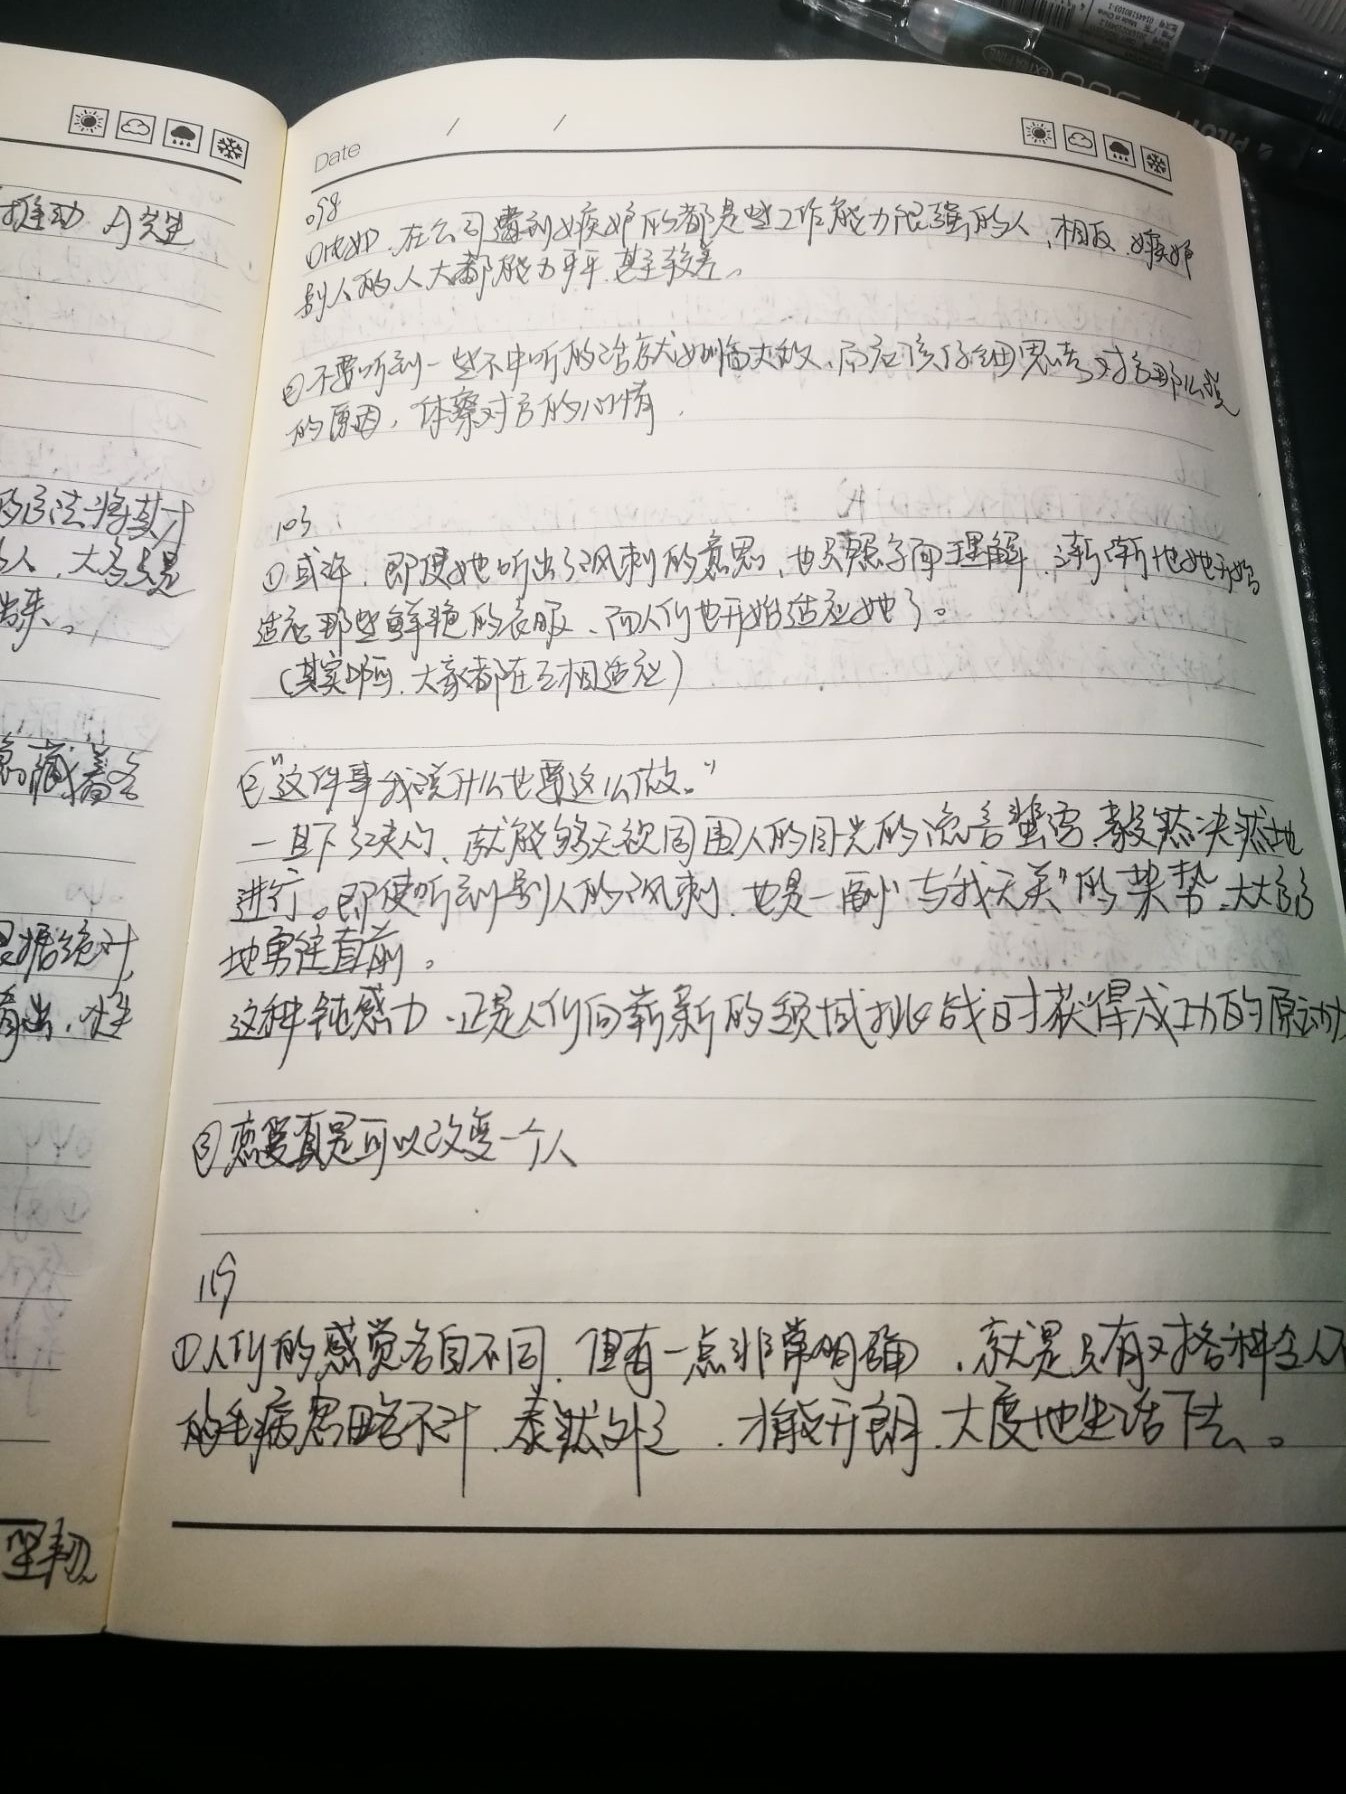 推动
的方法将其才
人，大多是
出来。
隐藏着各
坚韧
Date / /
098
①比如，在公司遭到嫉妒的都是些工作能力很强的人，相反，嫉妒
别人的人大都能力平平，甚至较差。
②不要听到一些不中听的话就如临大敌，而应该仔细思考对方那么说
的原因，体察对方的心情。
103
①或许，即使她听出了讽刺的意思，也只照字面理解，渐渐地她开始
适应那些鲜艳的衣服，而人们也开始适应她了。
（其实啊，大家都在互相适应）
②“这件事我说什么也要这么做。”
一旦下了决心，就能够无视周围人的目光的流言蜚语，毅然决然地
进行。即使听到别人的讽刺，也是一副“与我无关”的架势，大大方方
地勇往直前。
这种钝感力，正是人们向崭新的领域挑战时获得成功的原动力
③恋爱真是可以改变一个人
119
①人们的感觉各自不同，但有一点非常明确，就是只有对各种令人不
的毛病忽略不计，泰然处之，才能开朗、大度地生活下去。
PILOT